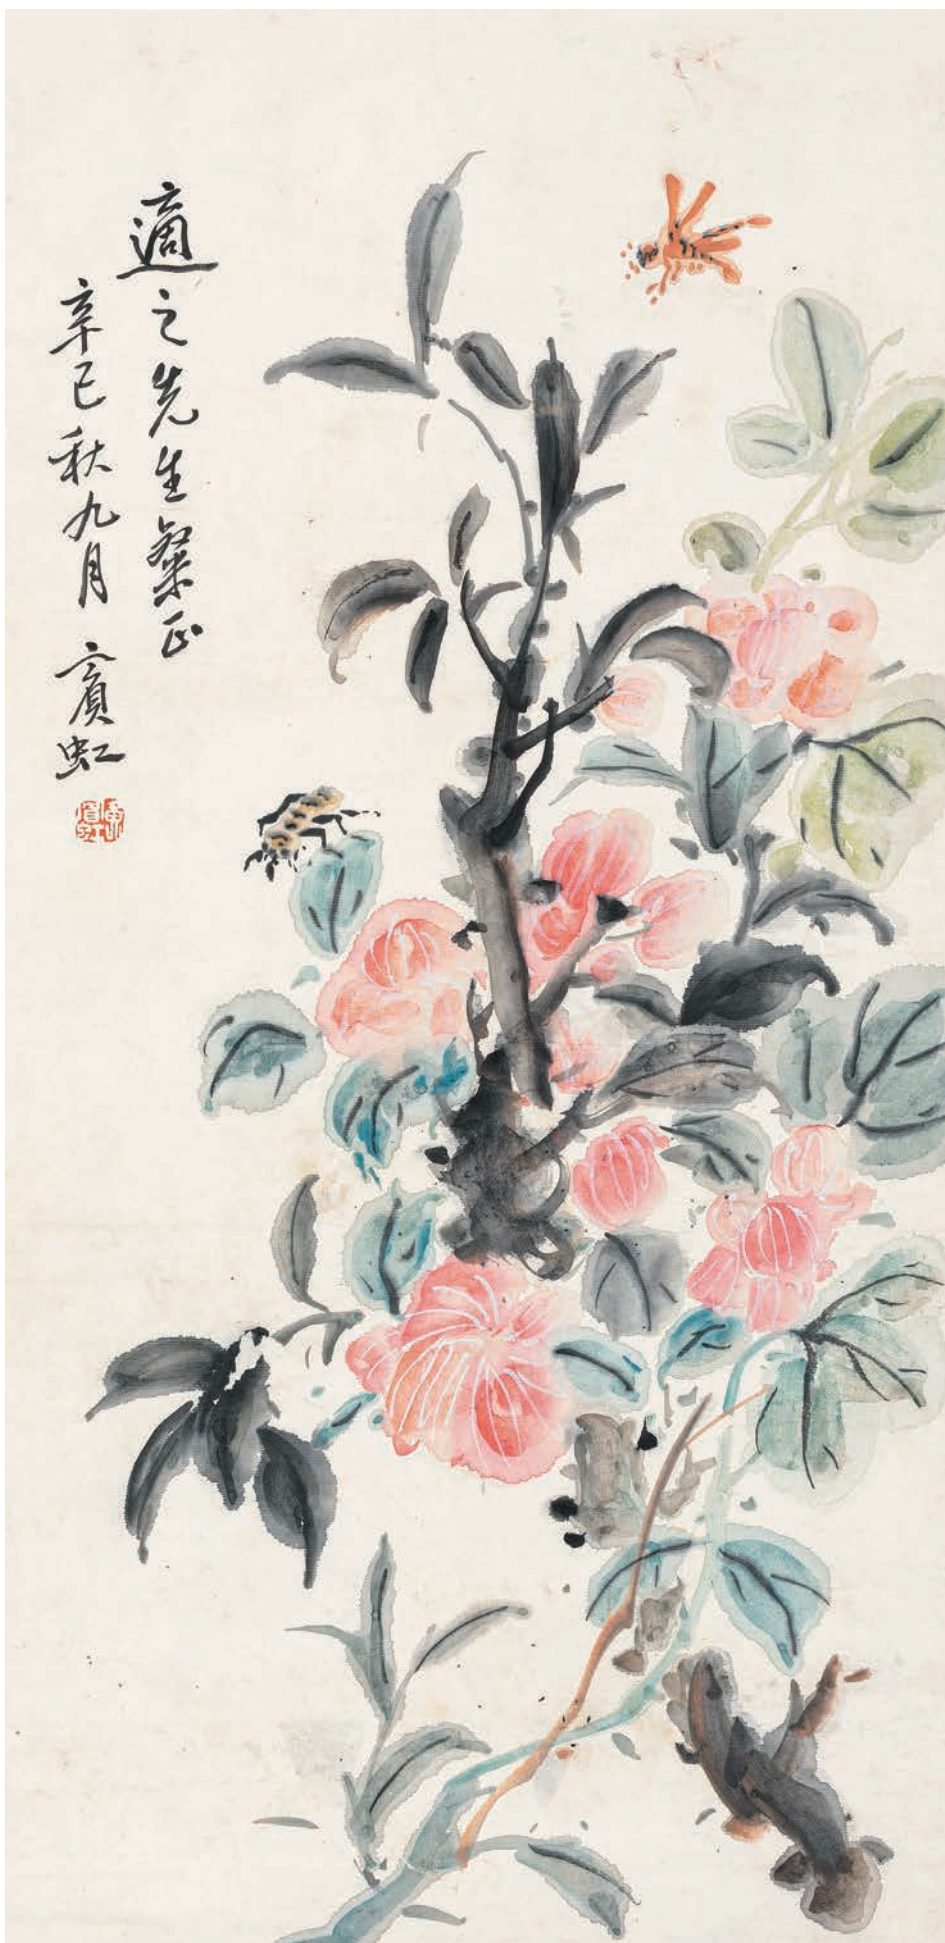 適之先生粲正
辛巳秋九月 賓虹
黃賓虹